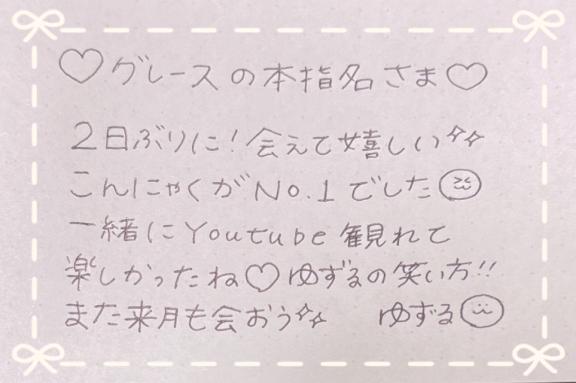 ♡グレースの本指名さま♡
2日ぶりに!会えて嬉しい✨
こんにゃくがNo.1でした
一緒にYoutube観れて
楽しかったね♡ゆずるの笑い方!!
また来月も会おう✨ ゆずる